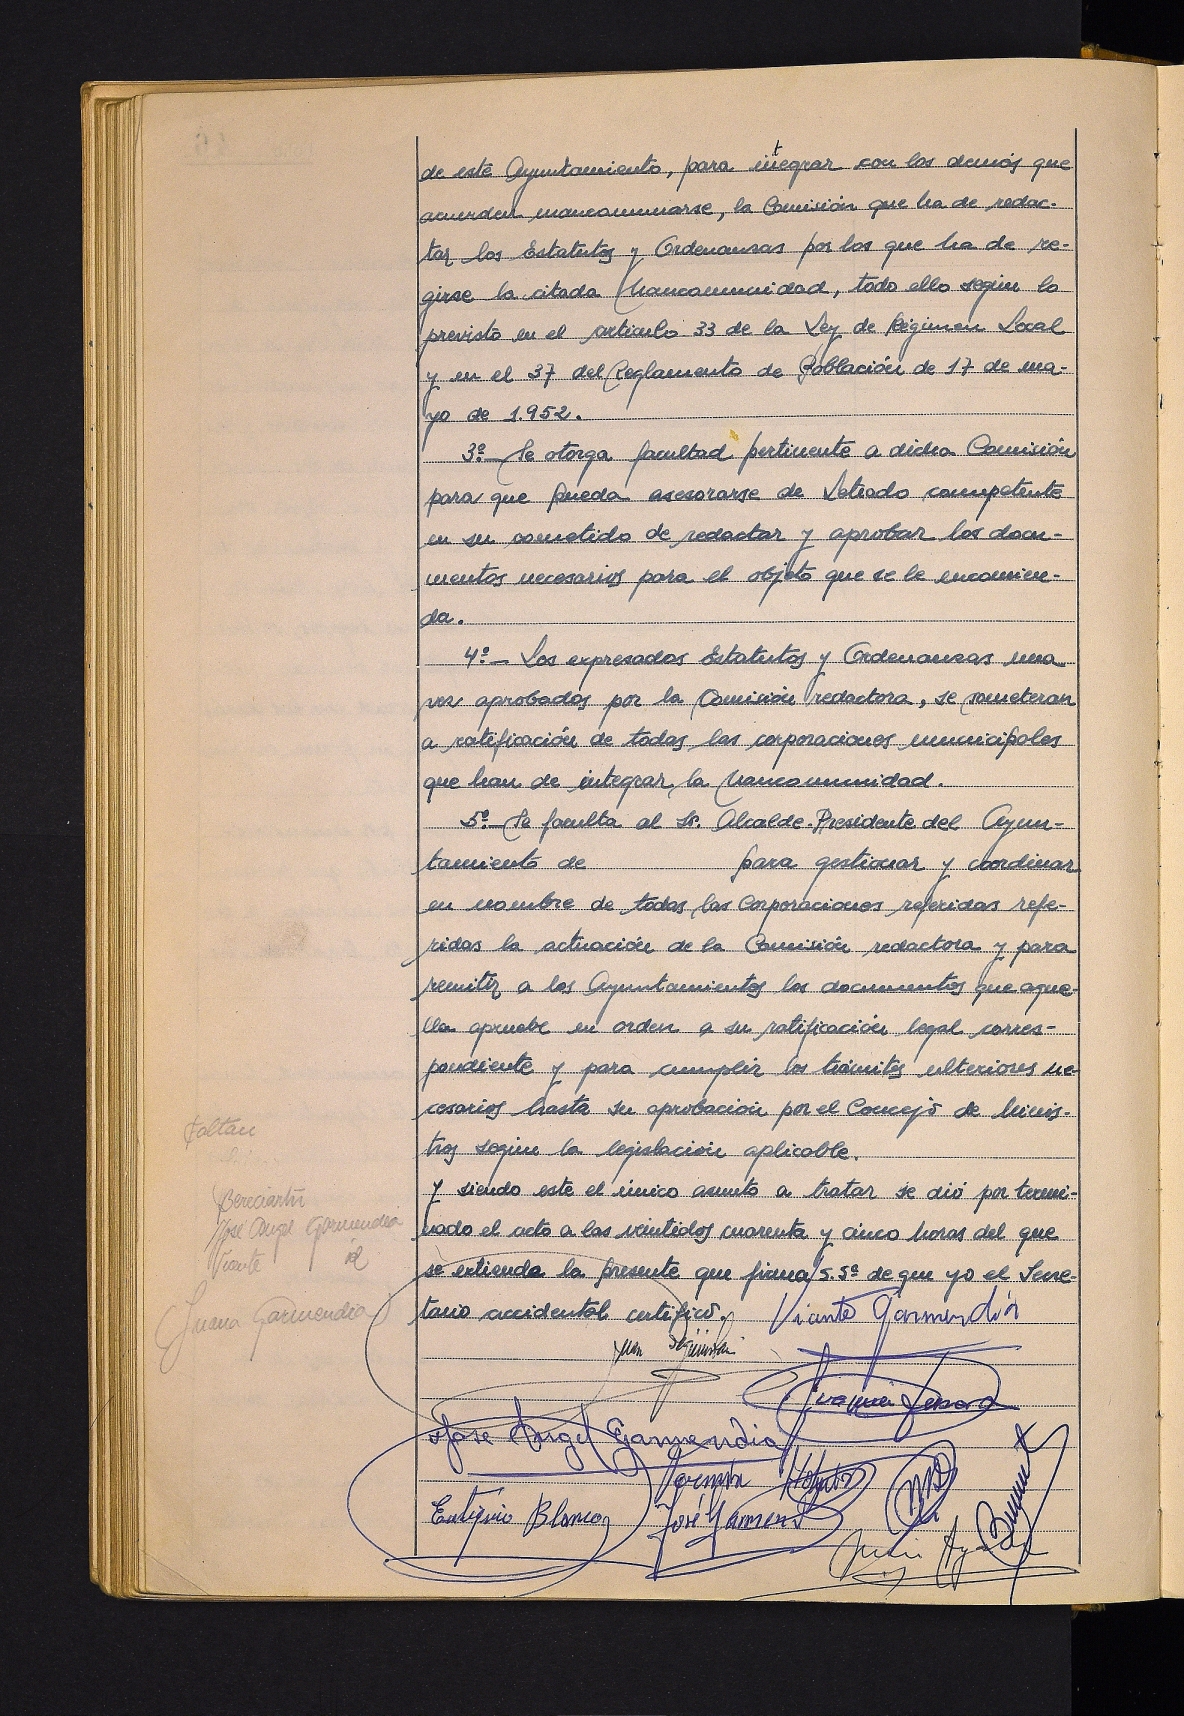 de este Ayuntamiento, para integrar con los demás que
acuerden mancomunarse, la Comisión que ha de redac-
tar los Estatutos y Ordenanzas por los que ha de re-
girse la citada Mancomunidad, todo ello según lo
previsto en el artículo 33 de la Ley de Régimen Local
y en el 37 del Reglamento de Población de 17 de ma-
yo de 1.952.
3º.- Se otorga facultad pertinente a dicha Comisión
para que pueda asesorarse de Letrado competente
en su cometido de redactar y aprobar los docu-
mentos necesarios para el objeto que se le encomien-
da.
4º.- Los expresados Estatutos y Ordenanzas una
vez aprobados por la Comisión redactora, se someteran
a ratificación de todas las corporaciones municipales
que han de integrar la Mancomunidad.
5º.- Se faculta al Sr. Alcalde-Presidente del Ayun-
tamiento de para gestionar y coordinar
en nombre de todas las Corporaciones referidas refe-
ridas la actuación de la Comisión redactora y para
remitir a los Ayuntamientos los documentos que aque-
lla apruebe en orden a su ratificación legal corres-
pondiente y para cumplir los trámites ulteriores ne-
cesarios hasta su aprobación por el Concejo de Minis-
tros según la legislación aplicable.
Y siendo este el único asunto a tratar se dió por termi-
nado el acto a las veintidos cuarenta y cinco horas del que
se extiende la presente que firma S.Sª de que yo el Secre-
tario accidental certifico.
Faltan
Bereciartu
José Angel Garmendia
Vicente id
Juana Garmendia
Vicente Garmendia
Jose Angel Garmendia
Eutiquio Blanco
José Garmend